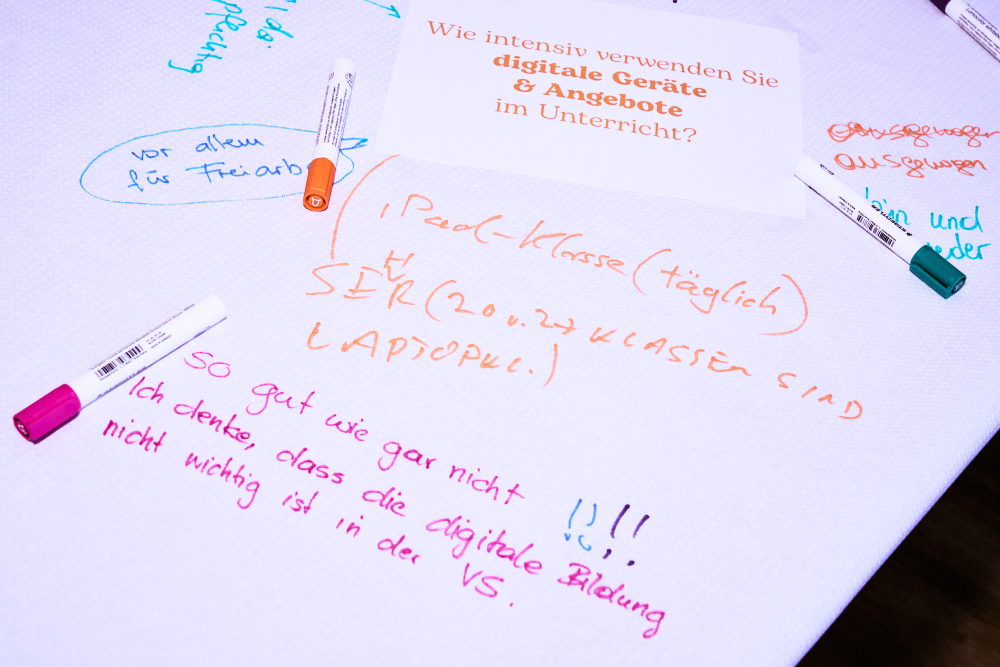 Wie intensiv verwenden Sie
digitale Geräte
& Angebote
im Unterricht?
pflichtig
vor allem
für Freiarb
ausgewogen
und
iPad-Klasse (täglich)
SEHR (20 v. 27 KLASSEN SIND
LAPTOPKL.)
So gut wie gar nicht !! !!
Ich denke, dass die digitale Bildung
nicht wichtig ist in der VS.